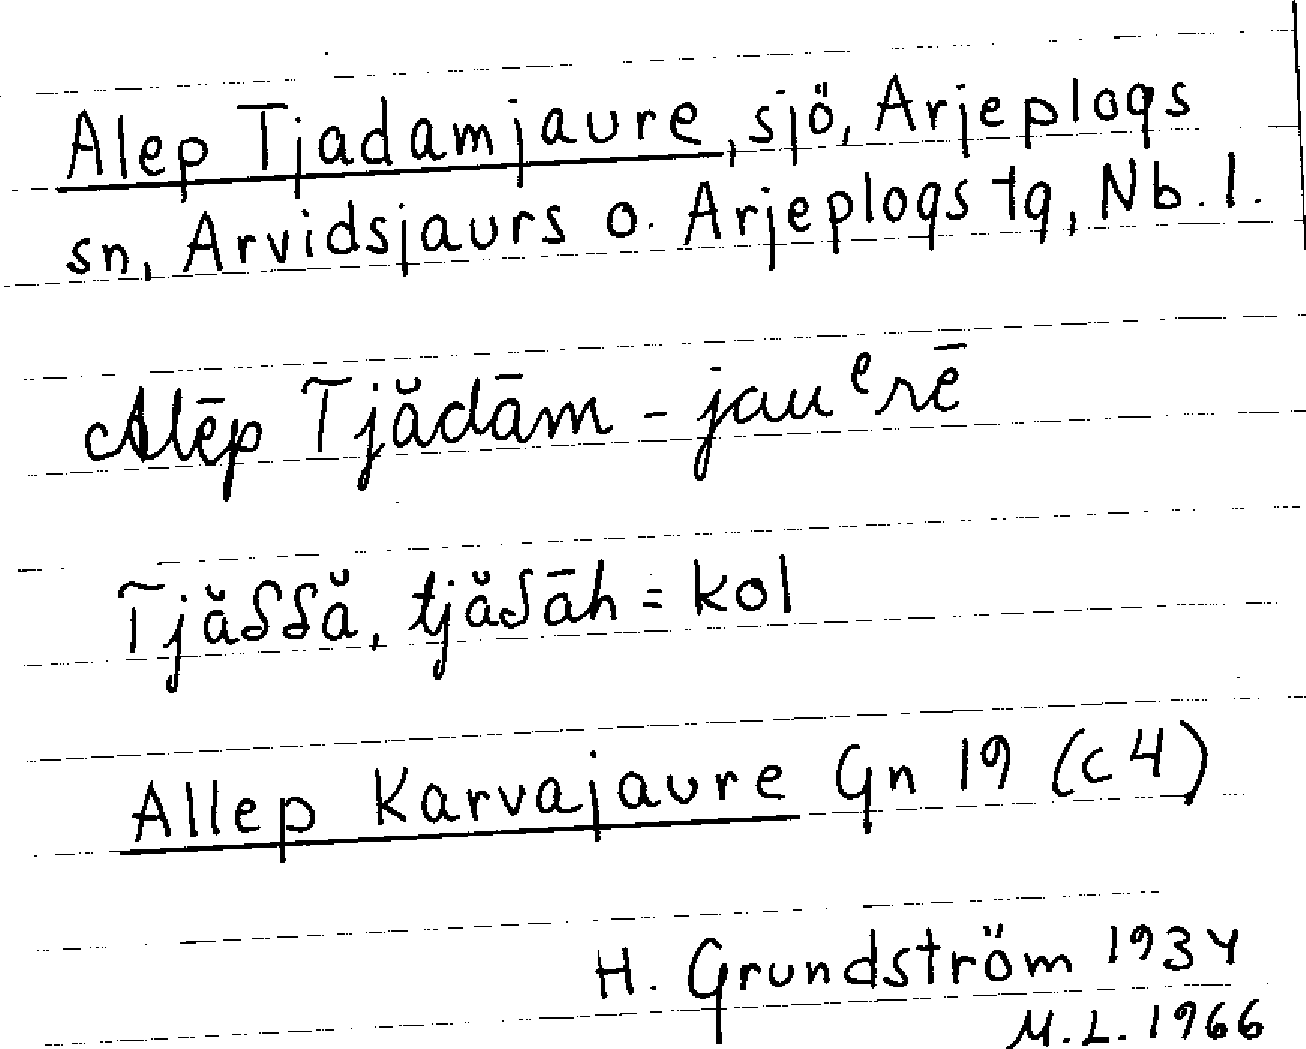 Alep Tjadamjaure, sjö, Arjeplogs
sn, Arvidsjaurs o. Arjeplogs tg, Nb. l.
Alēp Tjădām - jauᵉrē
Tjăδδă, tjăδāh = kol
Allep Karvajaure Gn 19 (c4)
H. Grundström 1934
M.L. 1966